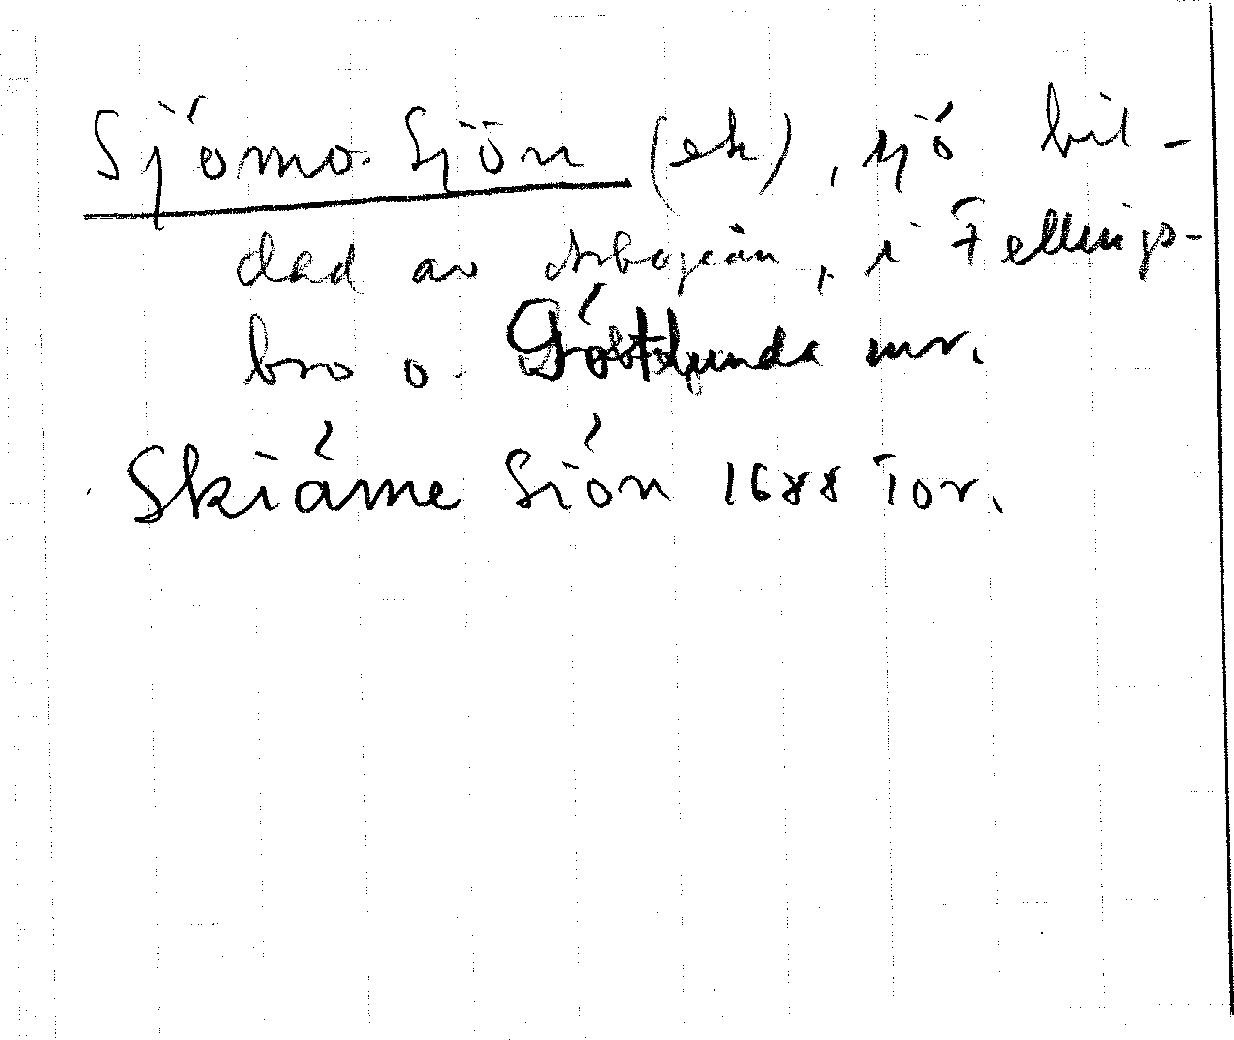 Sjömo Sjön (ek), sjö bil-
dad av Arbogaån, i Fellings-
bro o. Götlunda snr.
Skiäme Siön 1688 Tor.